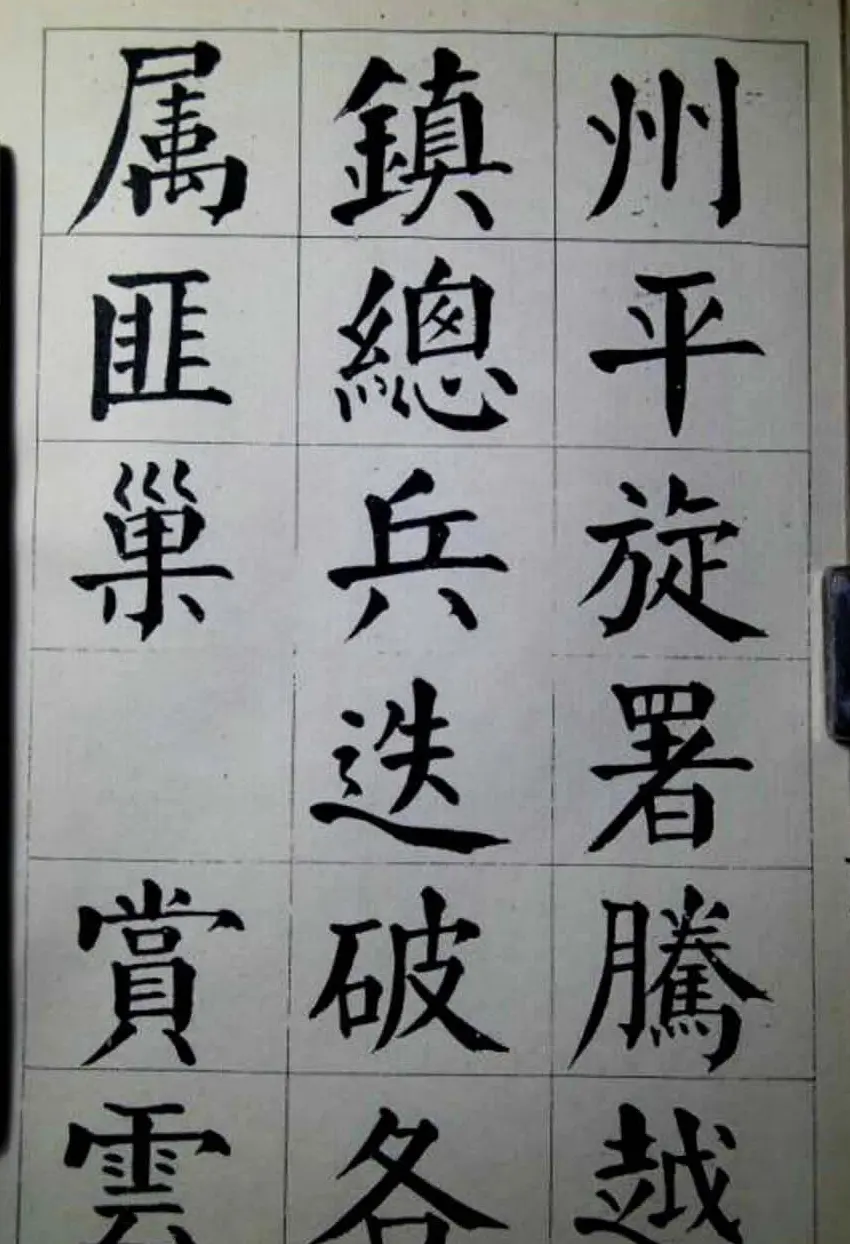 州平旋署騰越
鎮總兵迭破各
属匪巢 賞雲